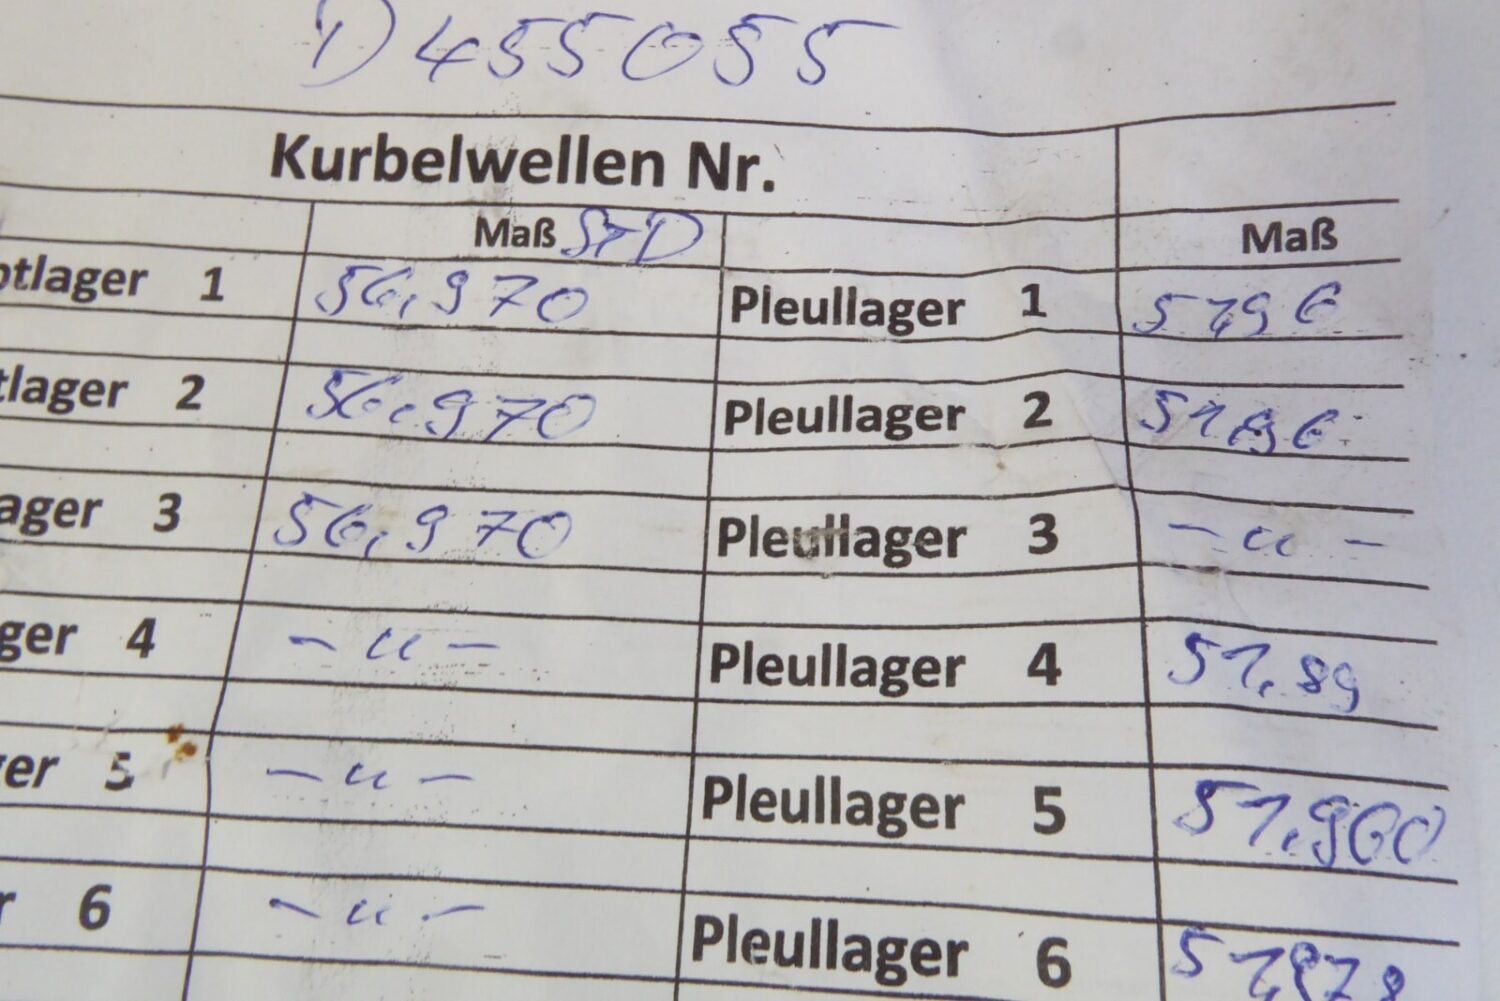 1) 455055
Kurbelwellen Nr.
Maß STD Maß
ptlager 1 56,970 Pleullager 1 51,96
tlager 2 56,970 Pleullager 2
ager 3 56,970 Pleullager 3 -u-
ger 4 -u- Pleullager 4 51,89
er 5 -u- Pleullager 5 51,960
r 6 -u- Pleullager 6